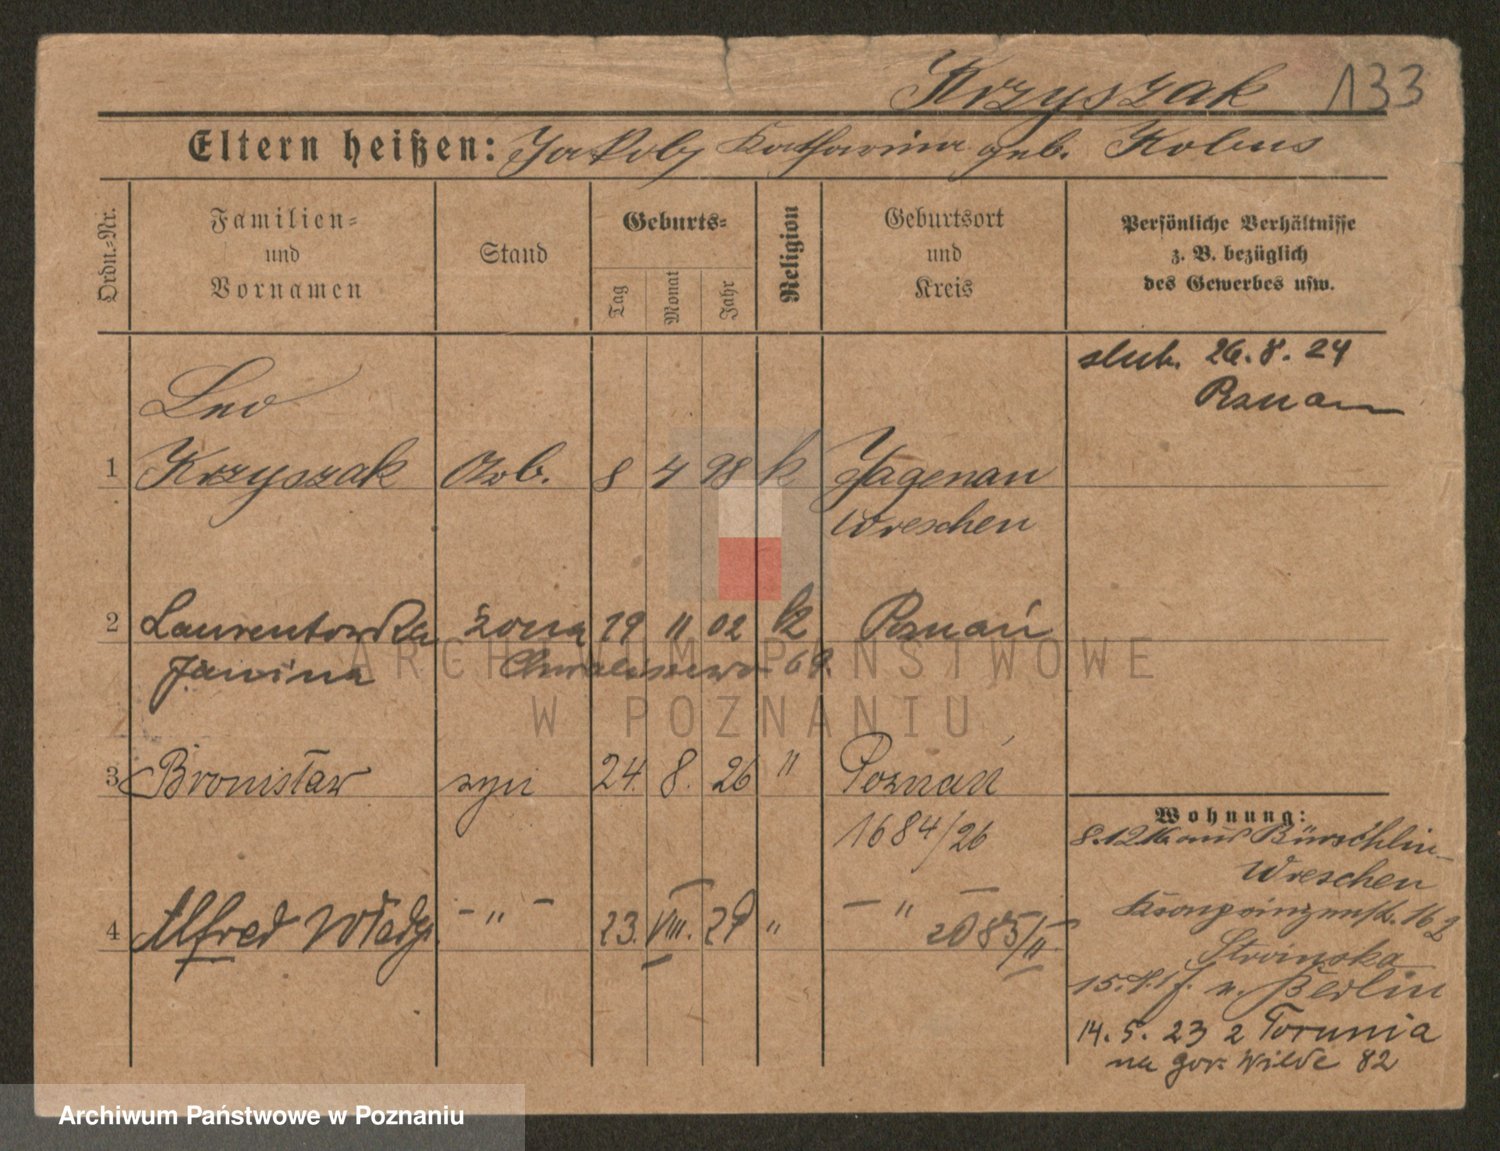 Krzyszak 133
Eltern heißen: Jakob, Katharina geb. Kobus
Ordn.=Nr.
Familien=
und
Vornamen
Stand
Geburts=
Tag
Monat
Jahr
Religion
Geburtsort
und
Kreis
Persönliche Verhältnisse
z. B. bezüglich
des Gewerbes usw.
slub. 26. 8. 24
Poznan
Leo
1 Krzyszak Arb. 8 4 98 k Hagenau
Wreschen
2 Laurentowska żona 19 11 02 k Poznań
Janina Chwaliszewo 69.
3 Bronisław syn 24. 8. 26 " Poznań
1684/26
4 Alfred Władys. - " - 23. VIII. 29 " - " - 2085/II
Wohnung:
8.12.16 aus
Wreschen
Kronprinzenstr. 16
Strónska
15. n. Berlin
14. 5. 23 z Torunia
na gor. Wilde 82
ARCHIWUM PAŃSTWOWE
W POZNANIU
Archiwum Państwowe w Poznaniu